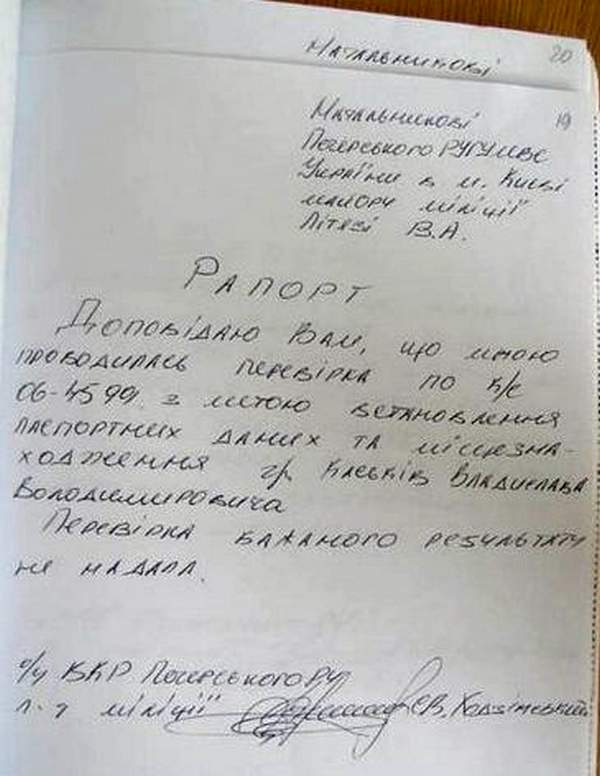 20
Начальникові
19
Начальникові
Печерського РУГУМВС
України в м. Києві
майору міліції
Літязі В.А.
Рапорт
Доповідаю Вам, що мною
проводилась перевірка по к/с
06-4599. з метою встановлення
паспортних даних та місцезна-
ходження гр. Каськів Владислава
Володимировича
Перевірка бажаного результату
не надала.
о/у ВКР Печерського РУ
л-т міліції